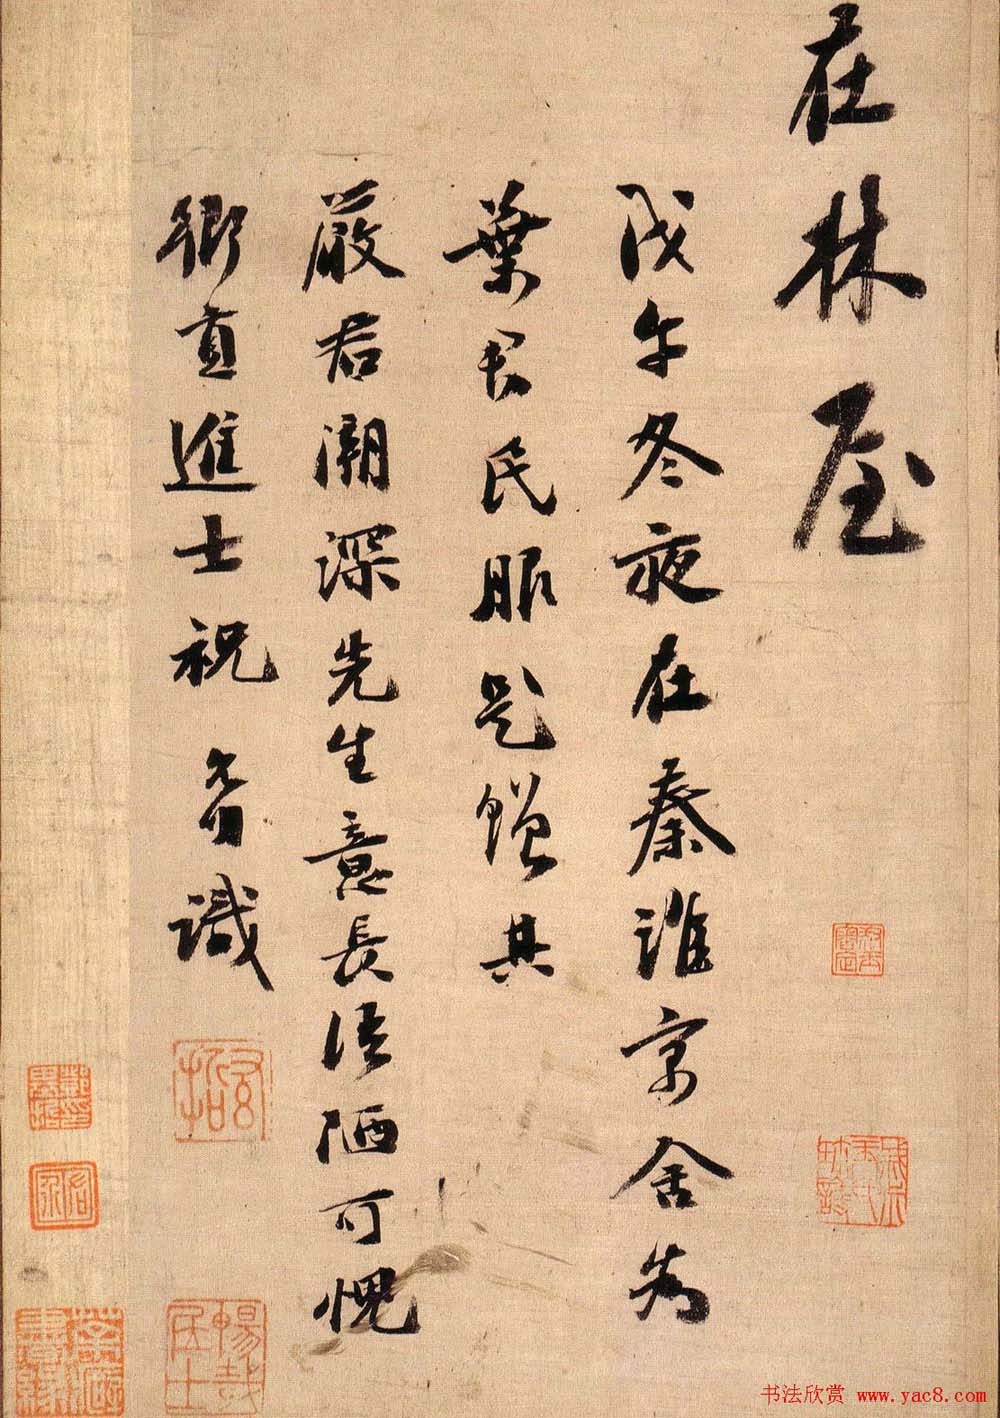 在林屋
戊午冬夜在秦淮寓舍为
叶君民服是赠其
严君潮深先生意长语陋可愧
乡直进士祝 识
书法欣赏 www.yac8.com